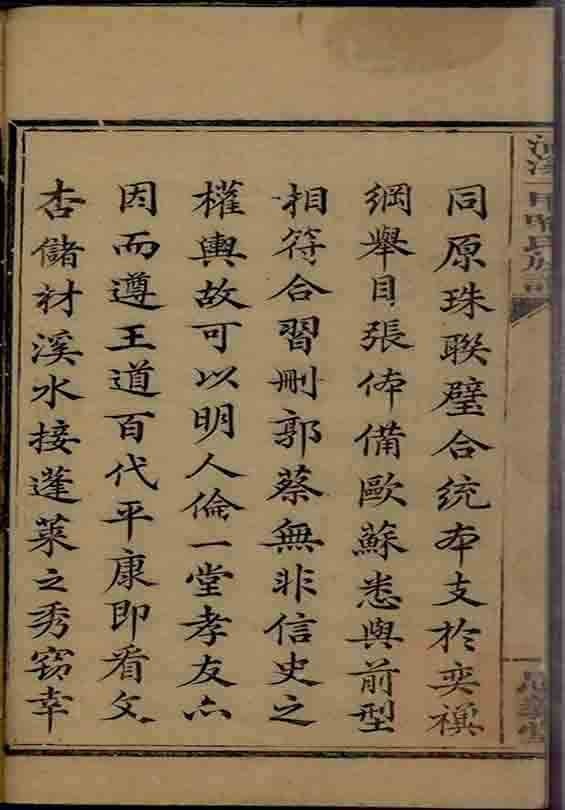 同原珠聯璧合統夲支於奕禩
綱舉目張体備歐蘇悉與前型
相符合習刪郭蔡無非信史之
權輿故可以明人倫一堂孝友亦
因而遵王道百代平康即看文
杏儲材溪水接蓬萊之秀窃幸